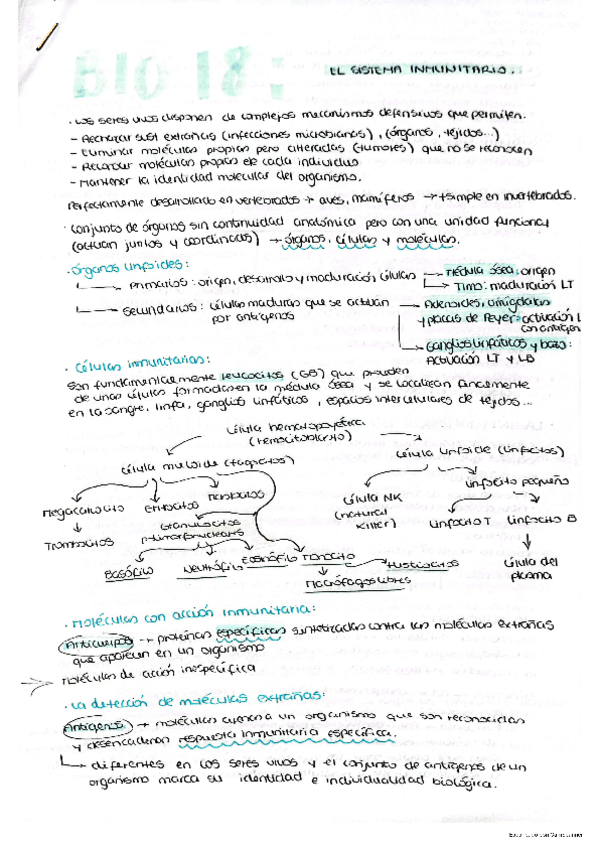 Bio 18:
EL SISTEMA INMUNITARIO.
· Los seres vivos disponen de complejos mecanismos defensivos que permiten.
- Rechazar sust extrañas (infecciones microbianas), (órganos, tejidos...)
- Eliminar moléculas propias pero alteradas (tumores) que no se reconocen
- Reconocer moléculas propias de cada individuo
- Mantener la identidad molecular del organismo.
Perfectamente desarrollado en vertebrados → aves, mamíferos → + simple en invertebrados.
· Conjunto de órganos sin continuidad anatómica pero con una unidad funcional
(actúan juntos y coordinados) → órganos, células y moléculas.
· Órganos linfoides:
Primarios: origen, desarrollo y maduración, células → Médula ósea: origen
→ Timo: maduración LT
Secundarios: células maduras que se activan
por antígenos
→ Adenoides, amígdalas
y placas de Peyer: activación L
con antígen
→ Ganglios linfáticos y bazo:
Activación LT y LB
· Células inmunitarias:
Son fundamentalmente leucocitos (GB) que
de unas células formadas en la médula ósea y se localizan
en la sangre, linfa, ganglios linfáticos, espacios intercelulares de tejidos...
Célula hematopoyética
(hemocitoblasto)
Célula mieloide (fagocitos)
Célula linfoide (linfocitos)
Megacariocito
Eritrocitos
Mastocitos
Célula NK
(natural
killer)
linfocito pequeño
Trombocitos
Granulocitos
polimorfonucleares
Linfocito T
linfocito B
Basófilo
Neutrófilo
Eosinófilo
Monocito
Histiocitos
Célula del
plasma
Macrófagos libres
· Moléculas con acción inmunitaria:
Anticuerpos → proteínas específicas sintetizadas contra las moléculas extrañas
que aparecen en un organismo
moléculas de acción inespecífica
· La detección de moléculas extrañas:
Antígenos → moléculas ajenas a un organismo que son reconocidas
y desencadenan respuesta inmunitaria específica.
→ diferentes en los seres vivos y el conjunto de antígenos de un
organismo marca su identidad e individualidad biológica.